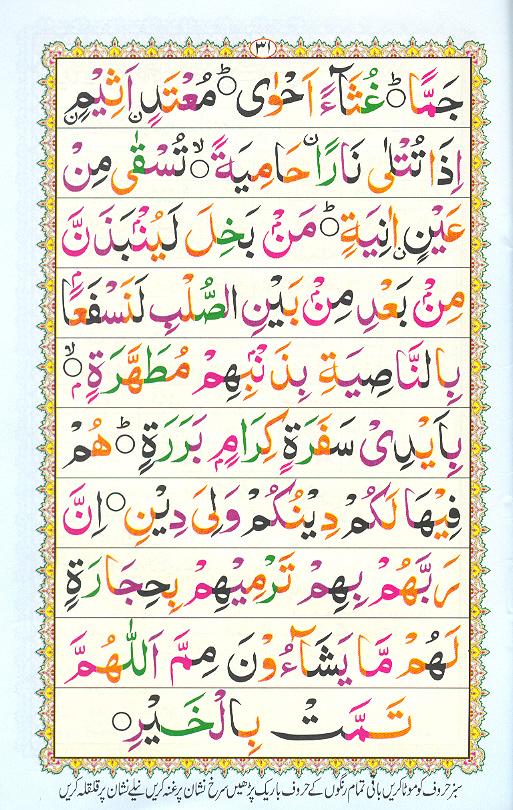 ۳۱
جَمًّا ؕ○ غُثَآءً اَحْوٰى ؕ○ مُعْتَدٍ اَثِيْمٍ ○ۙ
اِذَا تُتْلٰى نَارًا حَامِيَةً ○ۙ تُسْقٰى مِنْ
عَيْنٍ اٰنِيَةٍ ؕ○ مَنْۢ بَخِلَ لَيُنْۢبَذَنَّ
مِنْۢ بَعْدِ مِنْۢ بَيْنِ الصُّلْبِ لَنَسْفَعًاۢ
بِالنَّاصِيَةِ بِذَنْۢبِهِمْ مُطَهَّرَةٍۭ ○ۙ
بِاَيْدِىْ سَفَرَةٍ كِرَامٍۭ بَرَرَةٍ ؕ○ هُمْ
فِيْهَا لَكُمْ دِيْنُكُمْ وَلِىَ دِيْنِ ○ اِنَّ
رَبَّهُمْ بِهِمْ تَرْمِيْهِمْ بِحِجَارَةٍ
لَهُمْ مَّا يَشَآءُوْنَ مِمَّ اَللّٰهُمَّ
تَمَّتْ بِالْخَيْرِ ○
سبز حروف کو موٹا کریں باقی تمام رنگوں کے حروف باریک پڑھیں سرخ نشان پر غنہ کریں نیلے نشان پر قلقلہ کریں